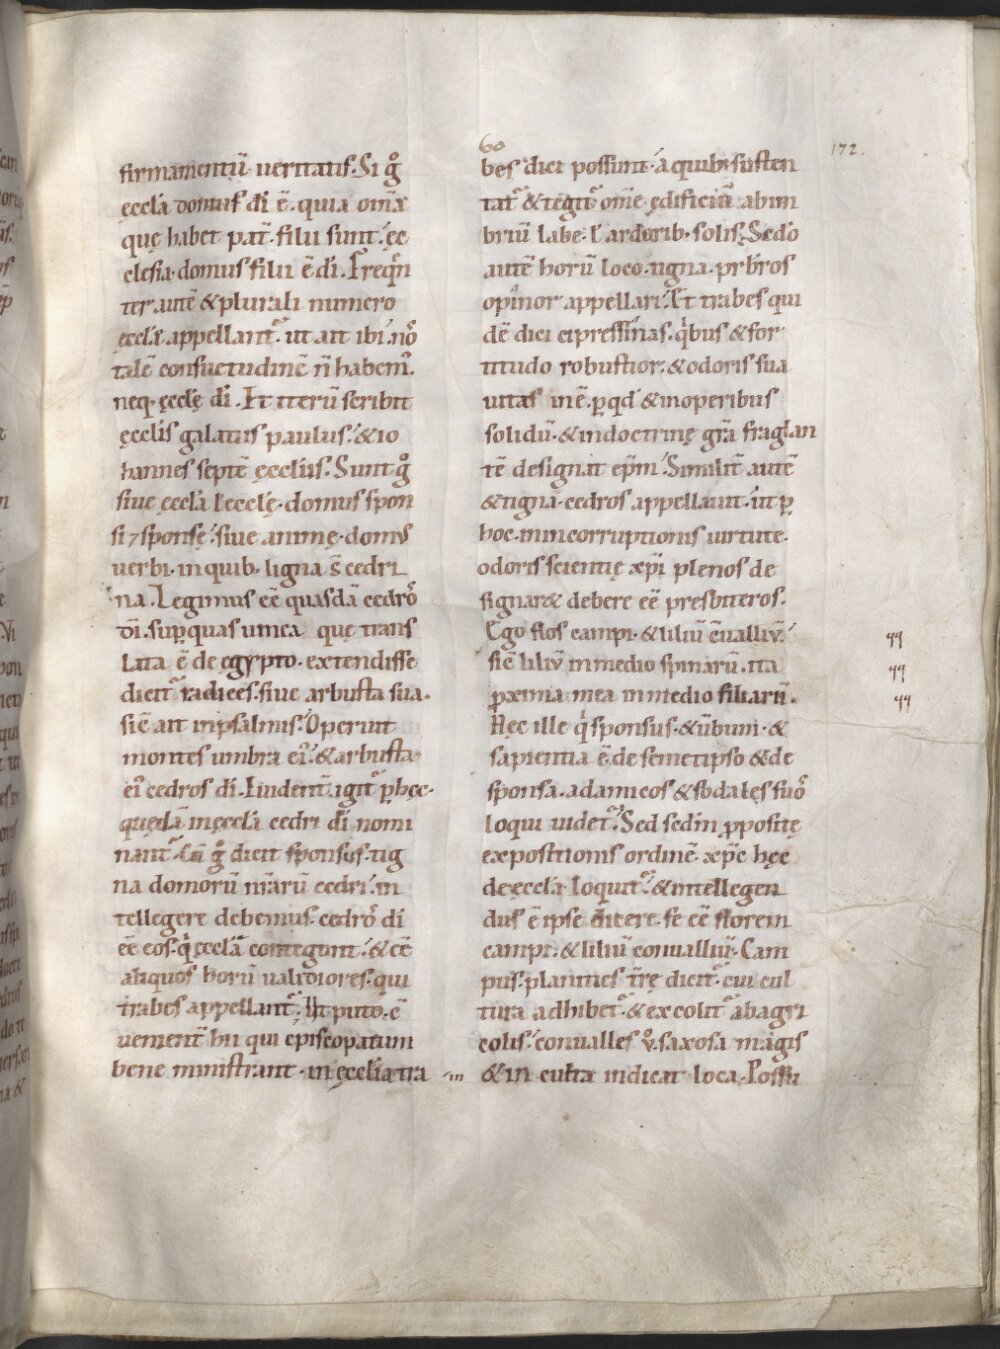 60
172.
firmamentū ueritatis. Si g̊
eccl̄a domus dī ē. quia om̄a
quę habet pat̄. filii sunt. ęc
clesia. domus filii ē dī. Freq̄n
ter autē & plurali numero
ęccl̄ę appellant᷑. ut ait ibi. nos
talē consuetudinē n̄ habem᷒.
neq. ęcclę dī. Et iterū scribit
ęccl̄is galatiis paulus. & io
hannes septē ęccl̄iis. Sunt g̊
siue ęccl̄a l eccl̄ę. domus spon
si ⁊ sponsę. siue animę. domus
uerbi. in quib. ligna s̄ cedri
na. Legimus eē quasdā cedros
dī. sup quas uinea quę trans
lata ē de egypto. extendisse
dicit᷑ radices. siue arbusta sua.
sic̄ ait in psalmis. Operuit
montes umbra ei᷒. & arbusta
ei᷒ cedros dī. Euident̄ igit᷑ p hęc
quędā in ęccl̄a cedri dī nomi
nant᷑. Cū g̊ dicit sponsus. tig
na domorū n̄rarū cedri. in
tellegere debemus. cedros dī
eē eos. qͥ ęccl̄ā contegunt. & eē
aliquos horū ualidiores. qui
trabes appellant᷑. Et puto. c̄
uenient̄ hii qui episcopatum
bene ministrant. in ęccl̄ia tra in
bes dici possunt. a quib. susten
tat᷑ & tegit᷑ om̄e ędificiū ab im
briū labe. l ardorib. solis. Sc̄do
autē horū loco. tigna. prb̄ros
opinor appellari. Et trabes qui
dē dici cipressinas. qͥbus & for
titudo robustior. & odoris sua
uitas inē. p qd & in operibus
solidū. & in doctrinę gr̄a fraglan
tē designat ep̄m. Similit̄ autē
& tigna. cedros appellauit. ut p
hoc. inincorruptionis uirtute.
odoris scientię xp̄i plenos de
signaret debere eē presbiteros.
Ego flos campi. & liliū c̄ualliū.
sic̄ liliū in medio spinarū. ita
pxima mea in medio filiarū.
Hęc ille qͥ sponsus. & ūbum. &
sapientia ē. de semetipso & de
sponsa. ad amicos & sodales suos
loqui uidet᷑. Sed sc̄dm ppositę
expositionis ordinē. xp̄c hęc
de ęccl̄a loquit᷑. & intellegen
dus ē ipse dicere. se eē florem
campi. & liliū conualliū. Cam
pus. planities t̄rę dicit᷑. cui cul
tura adhibet᷑. & excolit᷑ ab agri
colis. conualles v̊. saxosa magis
& in culta indicat loca. Possu